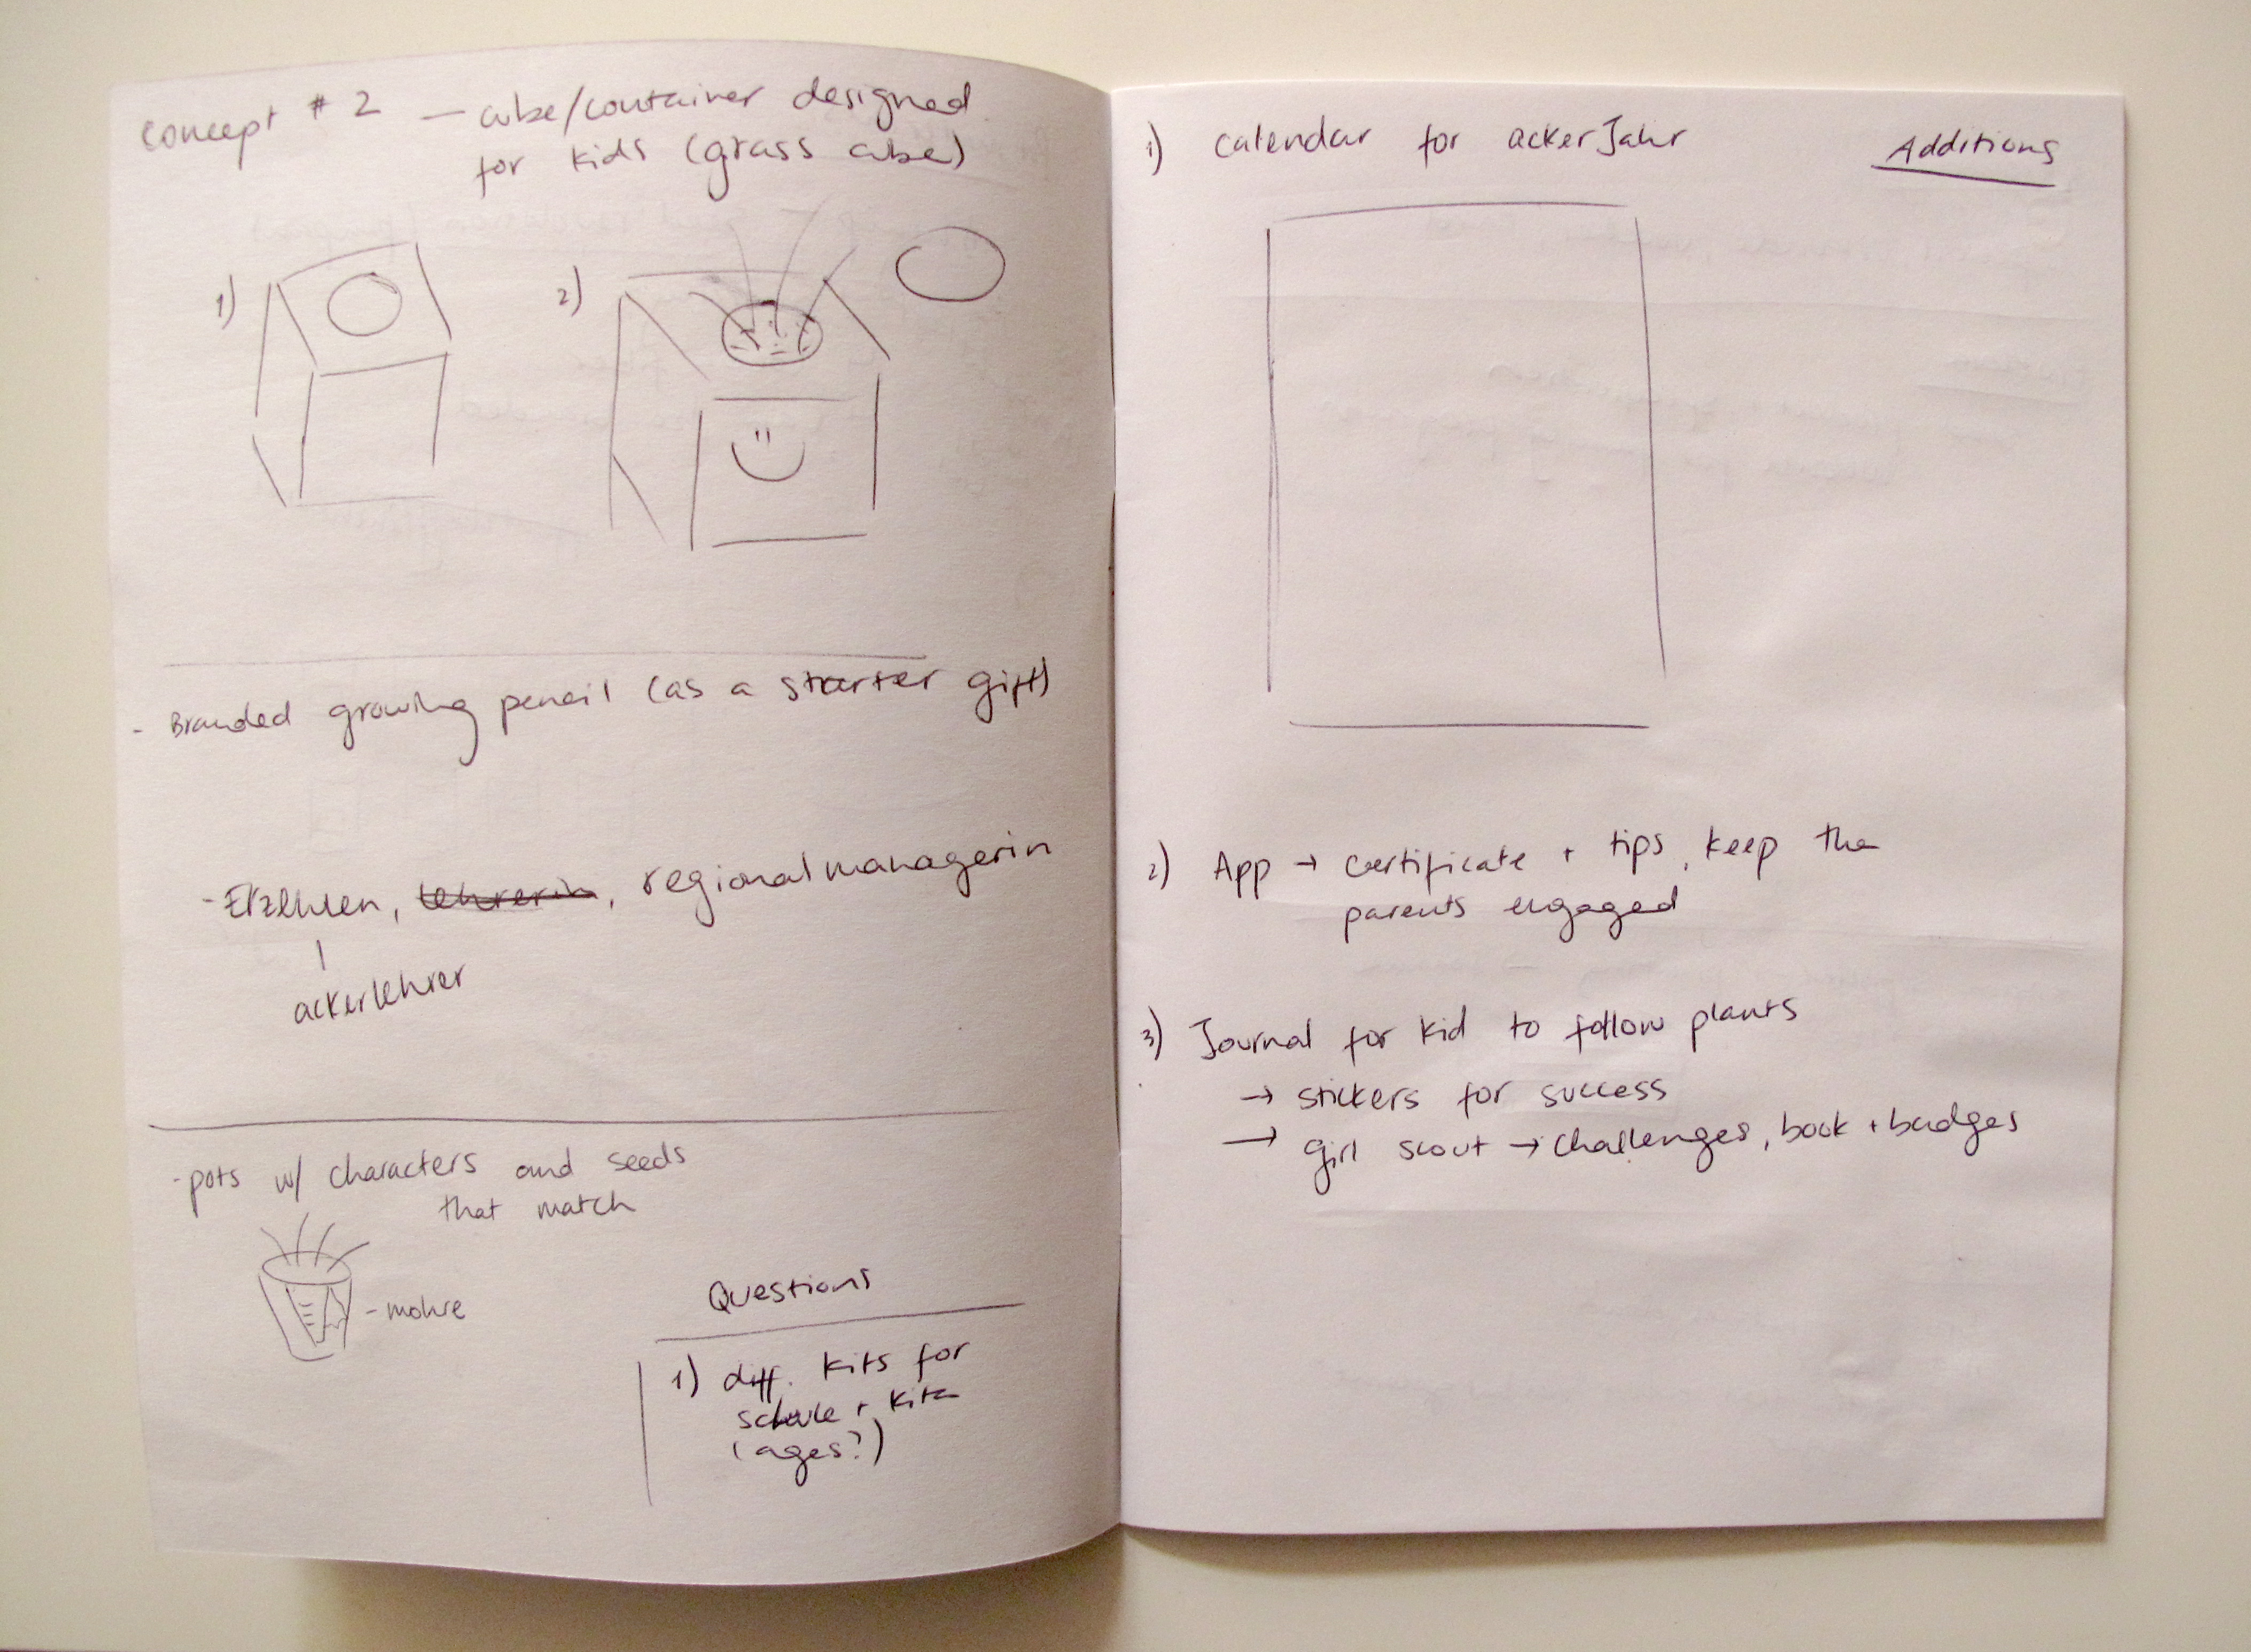 concept # 2 — cube/container designed
for kids (grass cube)
1)
2)
- Branded growing pencil (as a starter gift)
- Erzehren, lehrerin, regionalmanagerin
ackerlehrer
- pots w/ characters and seeds
that match
- mohre
Questions
1) diff. kits for
schule + kita
(ages?)
Additions
1) calendar for ackerJahr
2) App → certificate + tips, keep the
parents engaged
3) Journal for kid to follow plants
→ stickers for success
→ girl scout → challenges, book + badges